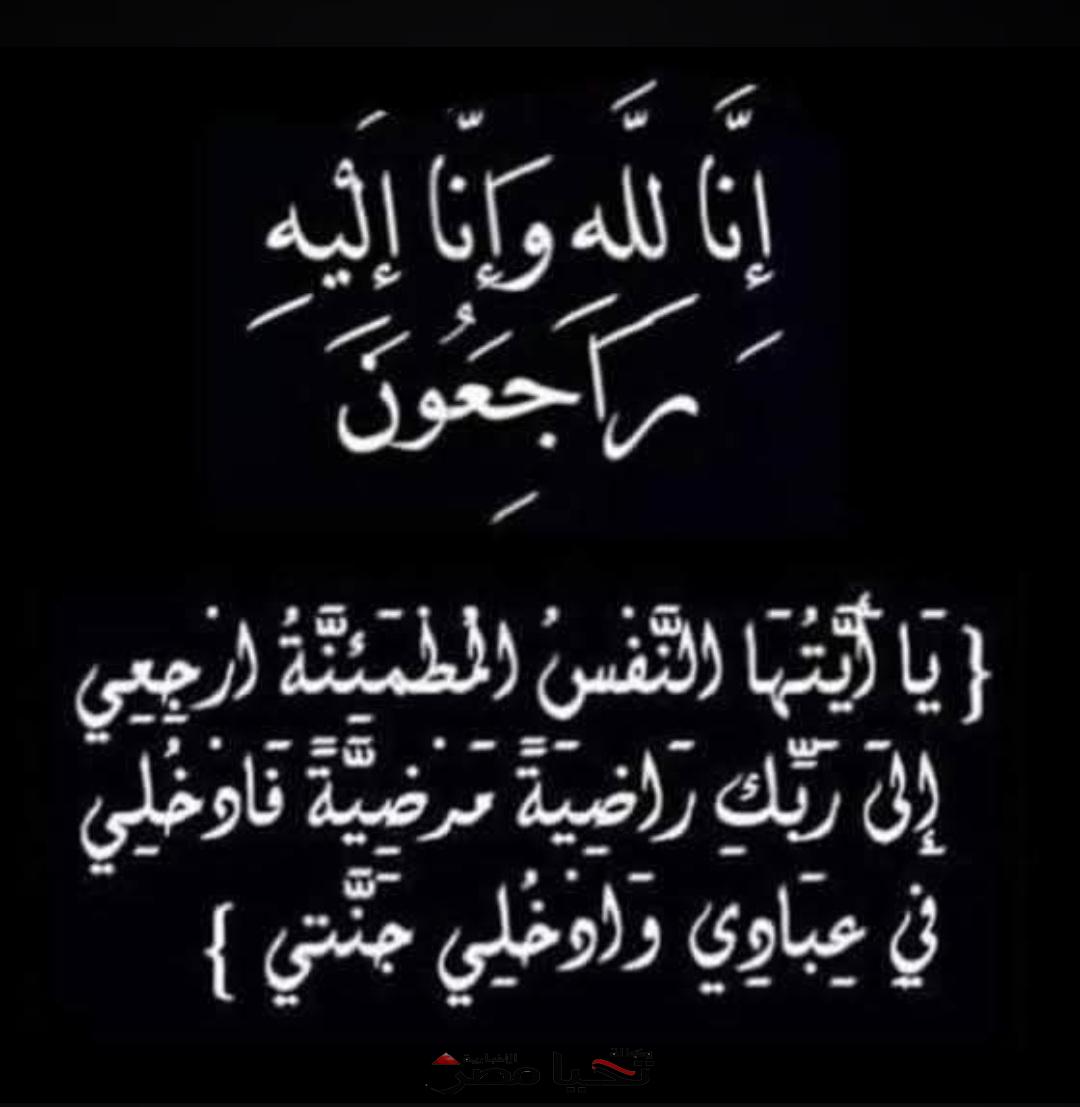 إِنَّا لِلَّهِ وَإِنَّا إِلَيْهِ
رَاجِعُونَ
{ يَا أَيَّتُهَا النَّفْسُ الْمُطْمَئِنَّةُ ارْجِعِي
إِلَىٰ رَبِّكِ رَاضِيَةً مَرْضِيَّةً فَادْخُلِي
فِي عِبَادِي وَادْخُلِي جَنَّتِي }
وكالة
تحيا مصر
الإخبارية